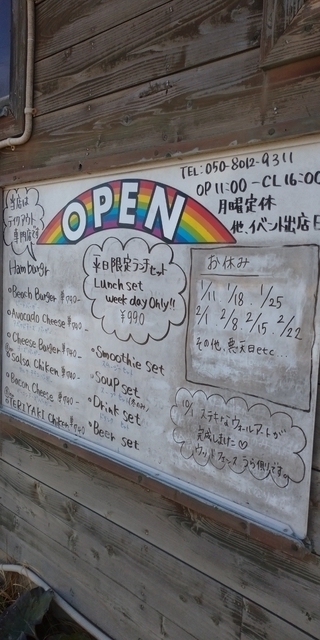 TEL:050-8012-9311
OP 11:00 - CL 16:00
月曜定休
他、イベント出店日
当店は
テイクアウト
専門店です
OPEN
Hamburger
・Beach Burger
・Avocado Cheese
・Cheese Burger
・Salsa Chiken
・Bacon Cheese
・TERIYAKI Chiken
平日限定ランチセット
Lunch set
week day Only!!
¥990
・Smoothie set
・Soup set
・Drink set
・Beer set
お休み
1/11 1/18 1/25
2/1 2/8 2/15 2/22
その他、悪天日etc...
10/1 ステキなウォールアートが
完成しました♡